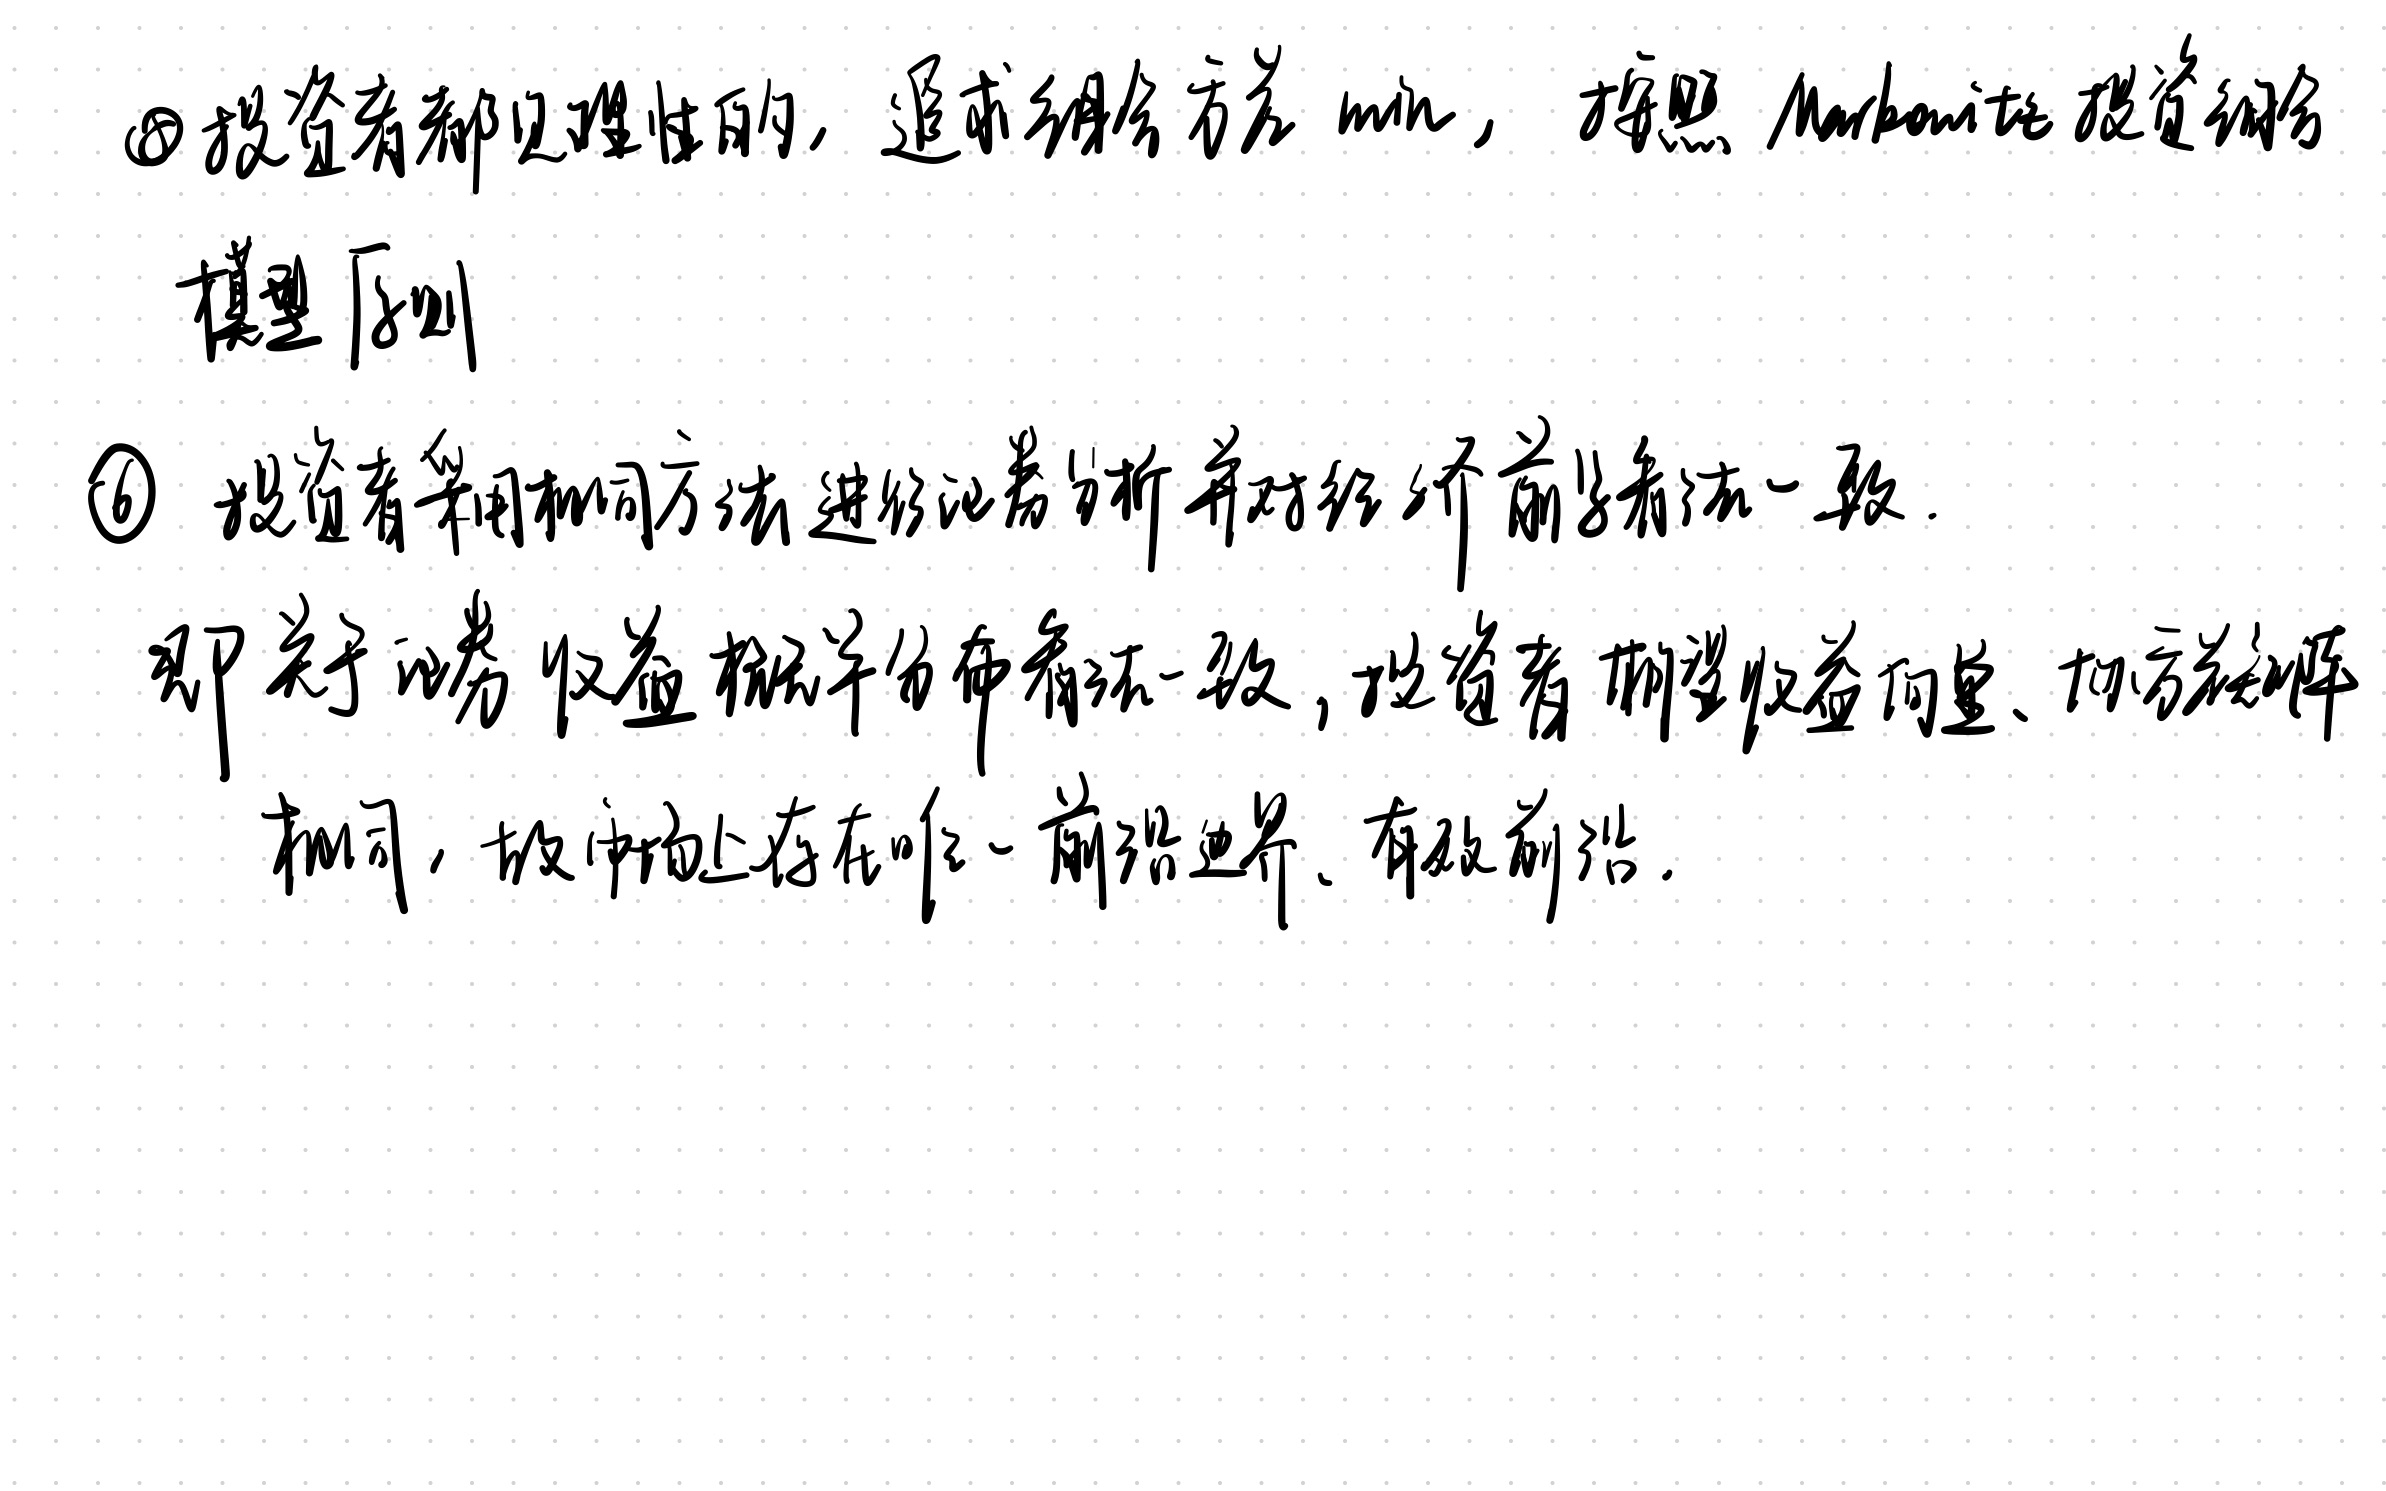 ⑧ 投资者都是理性的, 追求组合方差 min, 按照 Markowitz 投资组合
模型
⑥ 投资者采用相同方法进行证券分析并对经济前景看法一致.
即关于证券收益概率分布看法一致, 投资者期望收益估值、协方差矩阵
相同, 故市场上存在唯一前沿边界、有效前沿.